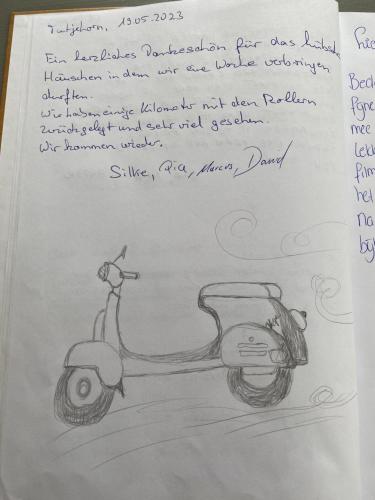 Tutjehorn, 19.05.2023
Ein herzliches Dankeschön für das hübsche
Häuschen in dem wir eine Woche verbringen
durften.
Wir haben einige Kilometer mit den Rollern
zurückgelegt und sehr viel gesehen.
Wir kommen wieder.
Silke, Pia, Marcus, David
mee
lekk
film
het
na